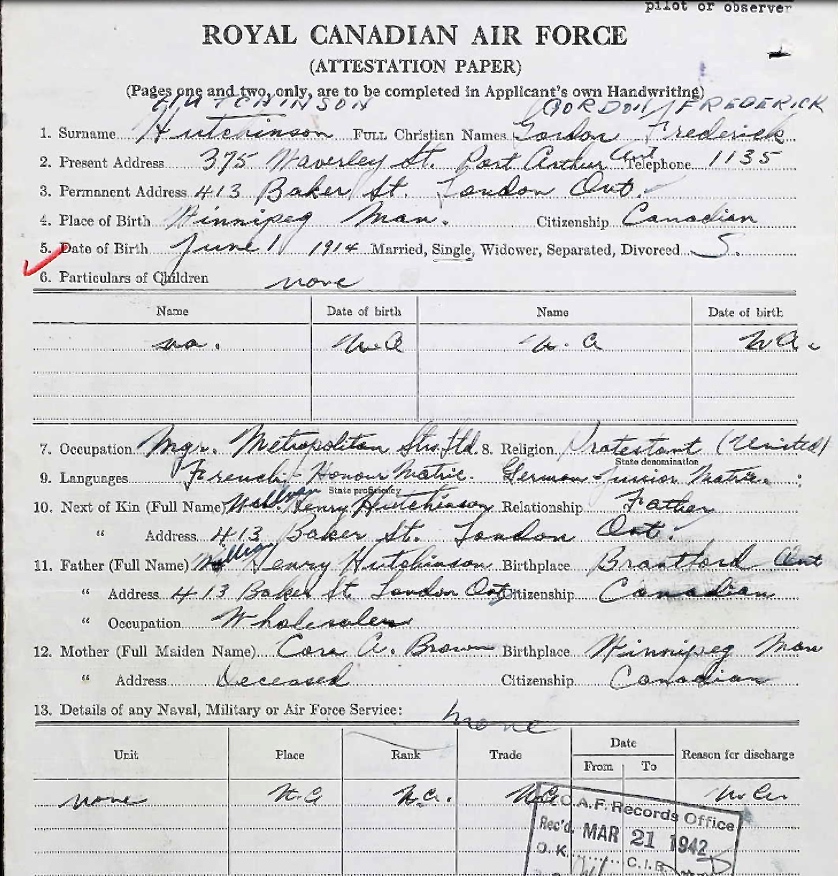 pilot or observer
ROYAL CANADIAN AIR FORCE
(ATTESTATION PAPER)
(Pages one and two, only, are to be completed in Applicant's own Handwriting)
HUTCHINSON GORDON FREDERICK
1. Surname Hutchinson FULL Christian Names Gordon Frederick
2. Present Address 375 Waverley St. Port Arthur Ont Telephone 1135
3. Permanent Address 413 Baker St. London Ont.
4. Place of Birth Winnipeg Man. Citizenship Canadian
5. Date of Birth June 1, 1914 Married, Single, Widower, Separated, Divorced S.
6. Particulars of Children none
Name Date of birth Name Date of birth
na. N.A N.A N.A.
7. Occupation Mgr. Metropolitan Strs. Ltd 8. Religion Protestant (United)
State denomination
9. Languages French - Honour Matric. German - Junior Matric.
State proficiency
10. Next of Kin (Full Name) William Henry Hutchinson Relationship Father
" Address 413 Baker St. London Ont.
11. Father (Full Name) William Henry Hutchinson Birthplace Brantford Ont
" Address 413 Baker St London Ont Citizenship Canadian
" Occupation Wholesaler
12. Mother (Full Maiden Name) Cora A. Brown Birthplace Winnipeg Man
" Address Deceased Citizenship Canadian
13. Details of any Naval, Military or Air Force Service: none
Unit Place Rank Trade Date Reason for discharge
From To
none N.A N.A. N.A N.A.
R.C.A.F. Records Office
Rec'd. MAR 21 1942
O.K. C.I.B.